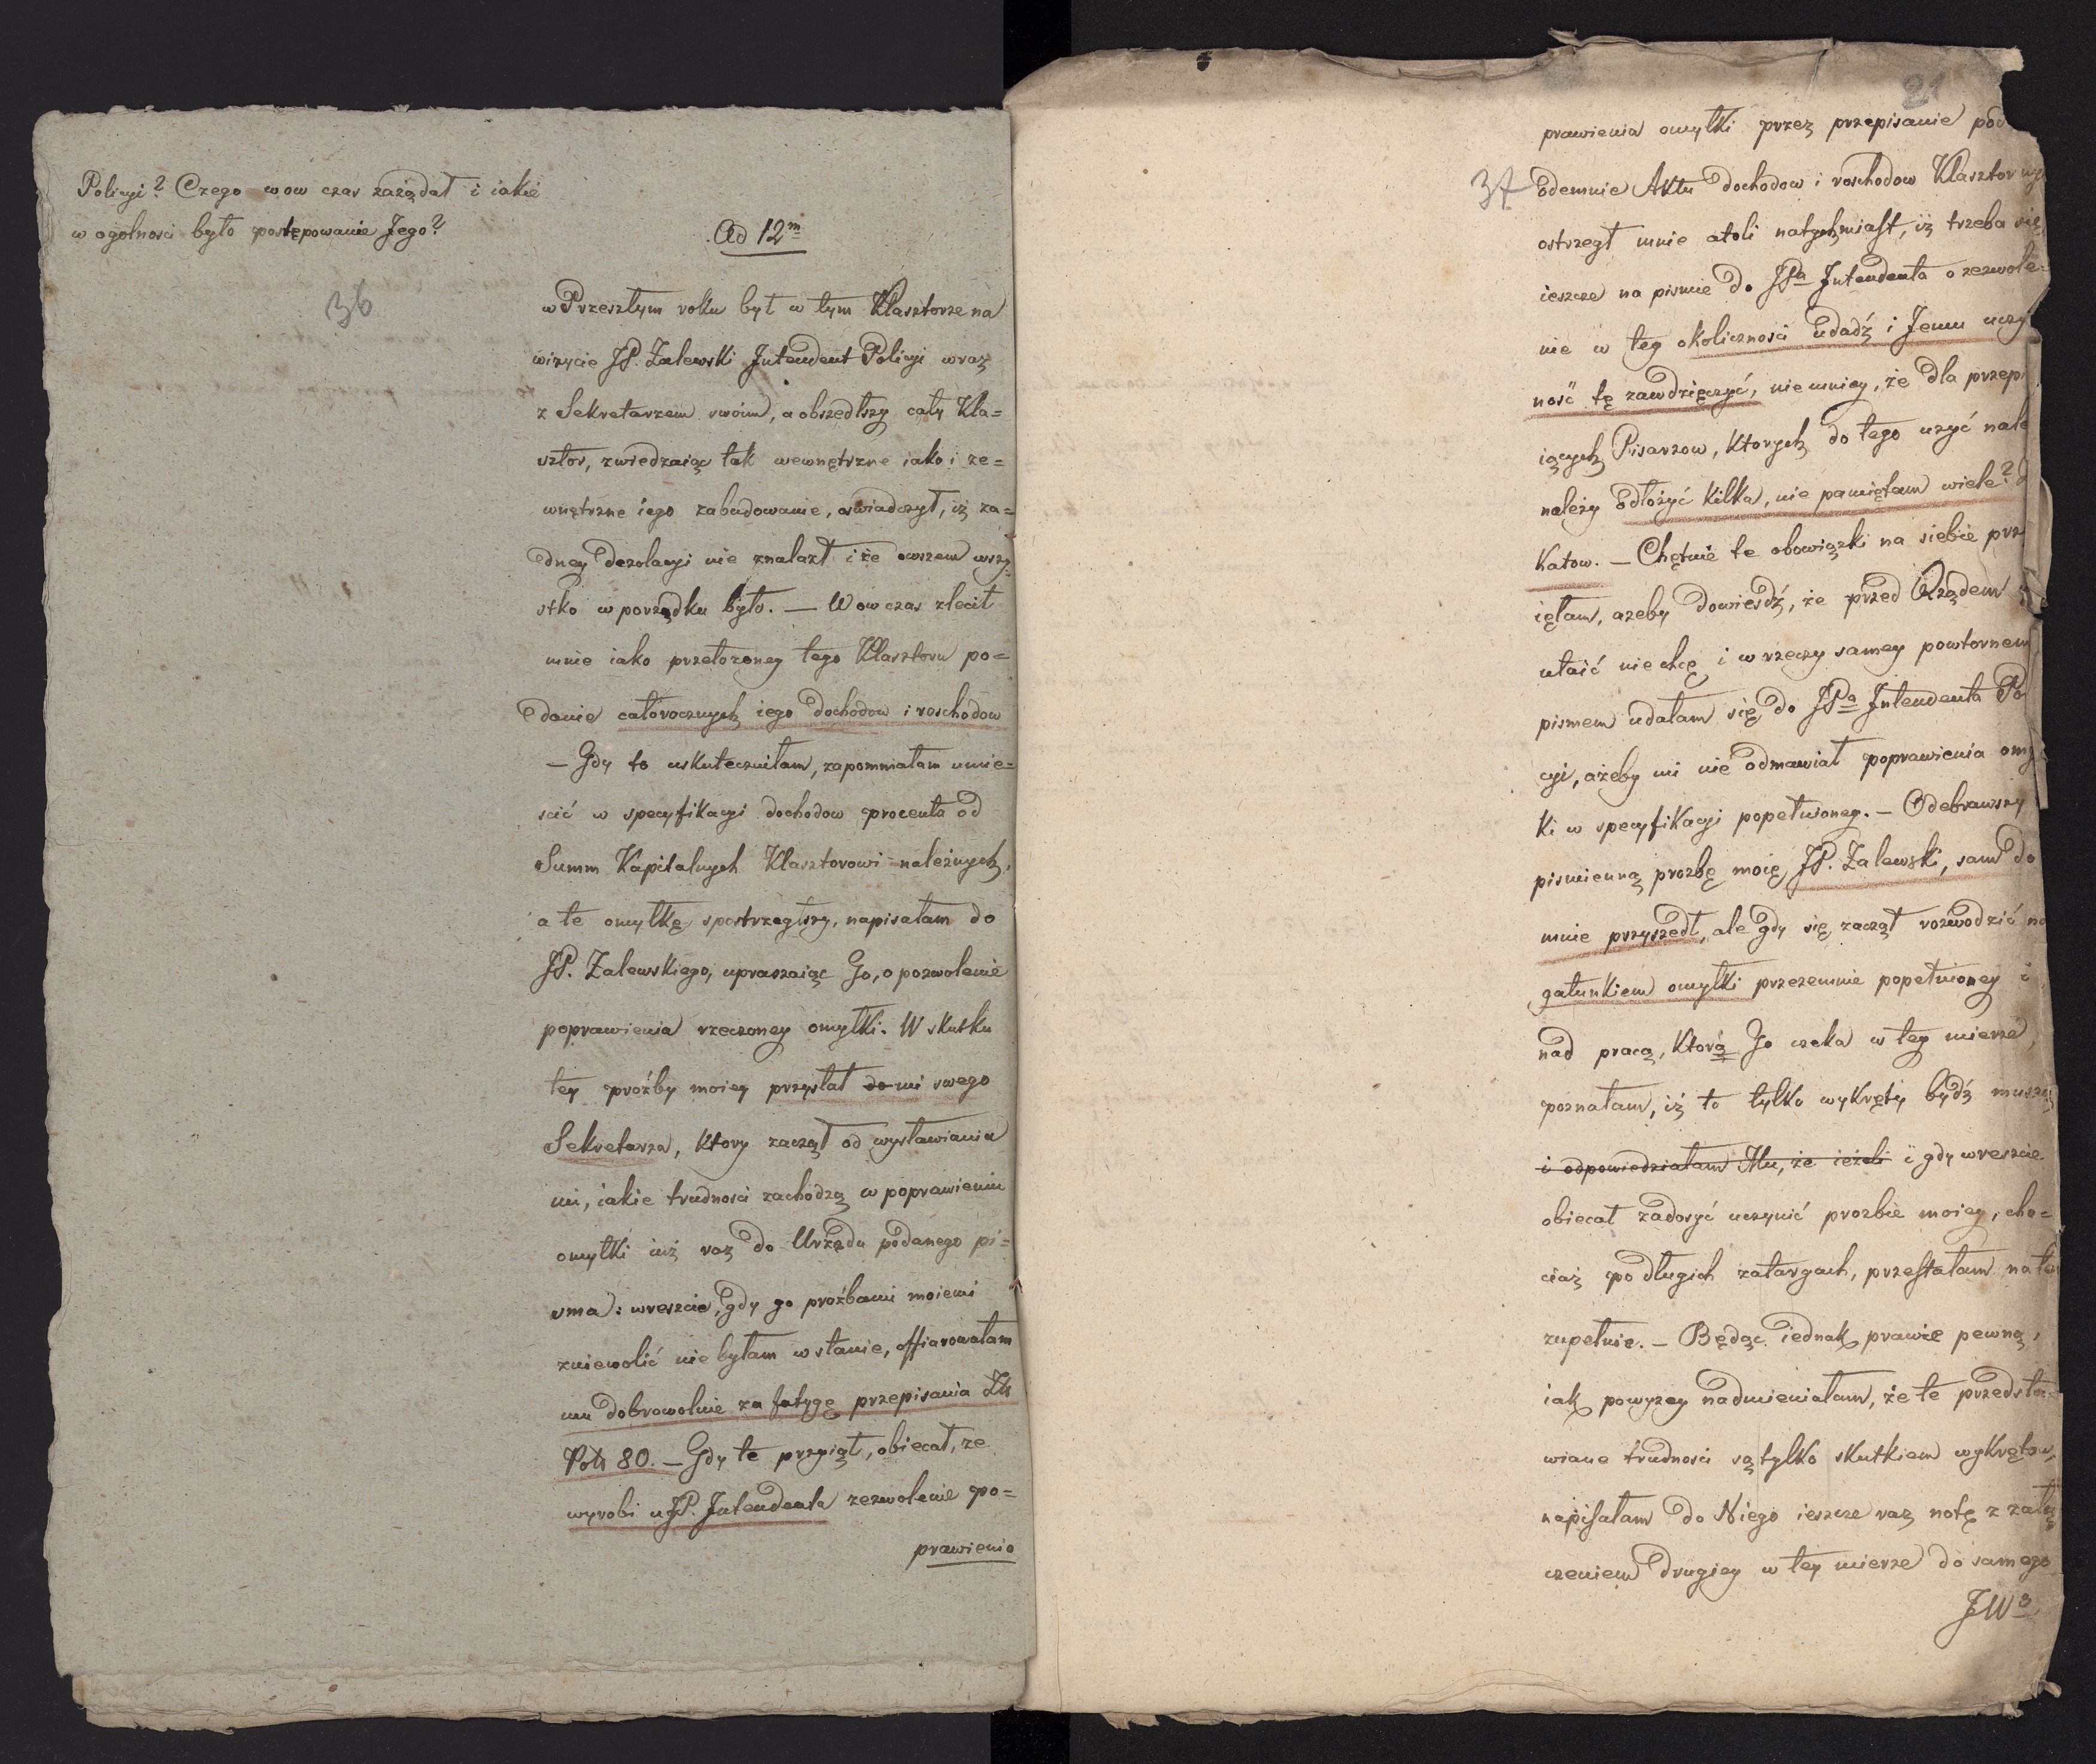 Policyi? Czego wow czas zażądał i iakié
w ogolnosci było postępowanie Jego?
36
Ad 12m
w Przeszłym roku był w tym Klasztorze na
wizycie JP. Zalewski Jntendent Policyi wraz
z Sekretarzem swoim, a obszedłszy cały Kla=
sztor, zwiedzaiąc tak wewnętrzne iako i ze=
wnętrzne iego zabudowanie, oświadczył, iż ża=
dney dezolacyi nie znalazł i że owszem wszy=
stko w porządku było. — Wow czas zlecił
mnie iako przełożoney tego Klasztoru po=
danie całorocznych iego dochodow i roschodow
— Gdy to uskuteczniłam, zapomniałam umie=
scić w specyfikacyi dochodow procenta od
Summ Kapitalnych Klasztorowi należnych,
a te omyłkę spostrzegłszy, napisałam do
JP. Zalewskiego, upraszaiąc Go, o pozwolenie
poprawienia rzeczoney omyłki. W skutku
tey prożby moiey przysłał do mi swego
Sekretarza, Ktory zaczął od wystawiania
mi, iakie trudnosci zachodzą w poprawieniu
omyłki iuż raz do Urzędu podanego pi=
sma: wreszcie, gdy go prożbami moiemi
zniewolić nie byłam w stanie, offiarowałam
mu dobrowolnie za fatygę przepisania Zł
Pols 80. — Gdy te przyiął, obiecał, ze
wyrobi u JP. Jntendenta zezwolenie po=
prawienia
21
prawienia omyłki przez przepisanie
37
odemnie Aktu dochodow i roschodow
ostrzegł mnie atoli natychmiast, iż trzeba się
ieszcze na pismie do JPa Jntendenta o zezwole=
nie w tey okoliczności udadź i Jemu
ność tę zawdzięczyć, niemniey, że dla
iących Pisarzow, Ktorych do tego użyć
należy odłożyć kilka, nie pamiętam wiele?
Katow. — Chętnie te obowiązki na siebie
ięłam, azeby dowieśdź, że przed Rządem
utaić nie chcę i w rzeczy samey powtornem
pismem udałam się do JPa Jntendenta
cyi, ażeby mi nie odmawiał poprawienia
ki w specyfikacyi popełnioney. — Odebrawszy
pismienną prozbę moię JP. Zalewski, sam do
mnie przyszedł, ale gdy się zaczął rozwodzić
gatunkiem omyłki przezemnie popełnioney i
nad pracą, Ktorá Jo czeka w tey mierze,
poznałam, iż to tylko wykręty bydź muszą
i odpowiedziałam Mu, że ieżeli i gdy wreszcie
obiecał zadosyć uczynić prozbie moiey, cho=
ciaż po długich zatargach, przestałam na
zupełnie. — Będąc iednak prawie pewną,
iak powyzey nadmieniałam, że te przedsta=
wiane trudnosci są tylko skutkiem wykrętow,
napisałam do Niego ieszcze raz notę z załą
czeniem drugiey w tey mierze do samego
JWo